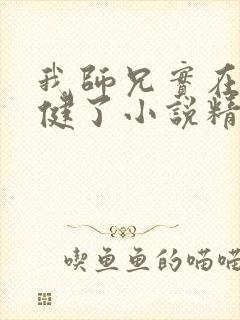 我師兄實在
健了小說精
喫魚魚的喵喵